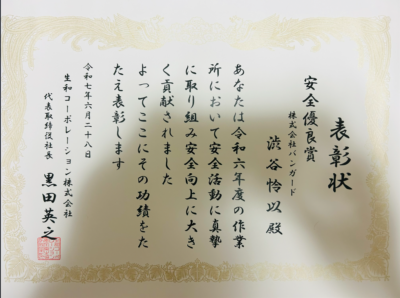 表彰状
安全優良賞
株式会社バンガード
渋谷怜以 殿
あなたは令和六年度の作業
所において安全活動に真摯
に取り組み安全向上に大き
く貢献されました
よってここにその功績をた
たえ表彰します
令和七年六月二十八日
生和コーポレーション株式会社
代表取締役社長 黒田英之